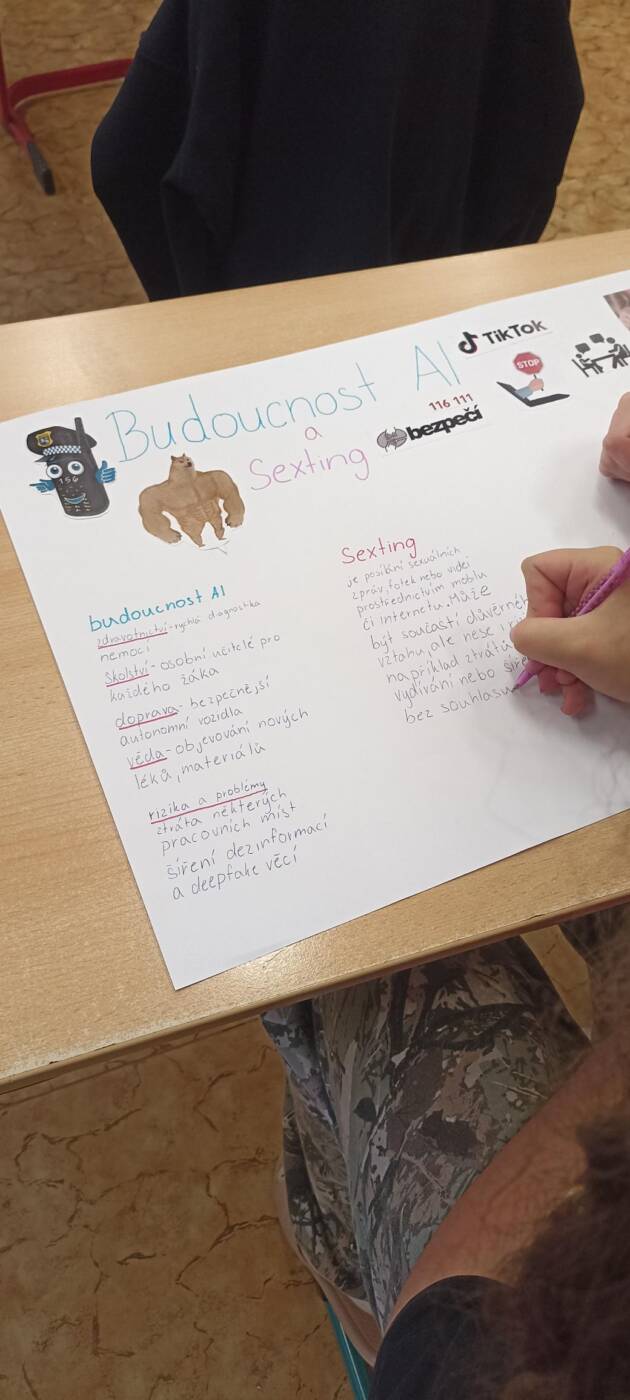 Budoucnost AI
a
Sexting
TikTok
STOP
116 111
bezpečí
156
budoucnost AI
zdravotnictví-rychlá diagnostika
nemocí
školství-osobní učitelé pro
každého žáka
doprava-bezpečnější
autonomní vozidla
věda-objevování nových
léků, materiálů
rizika a problémy
ztráta některých
pracovních míst
šíření dezinformací
a deepfake věcí
Sexting
je posílání sexuálních
zpráv, fotek nebo videí
prostřednictvím mobilu
či internetu. Může
být součástí důvěrnéh
vztahu, ale nese
například ztrátu
vydírání nebo šíře
bez souhlasu